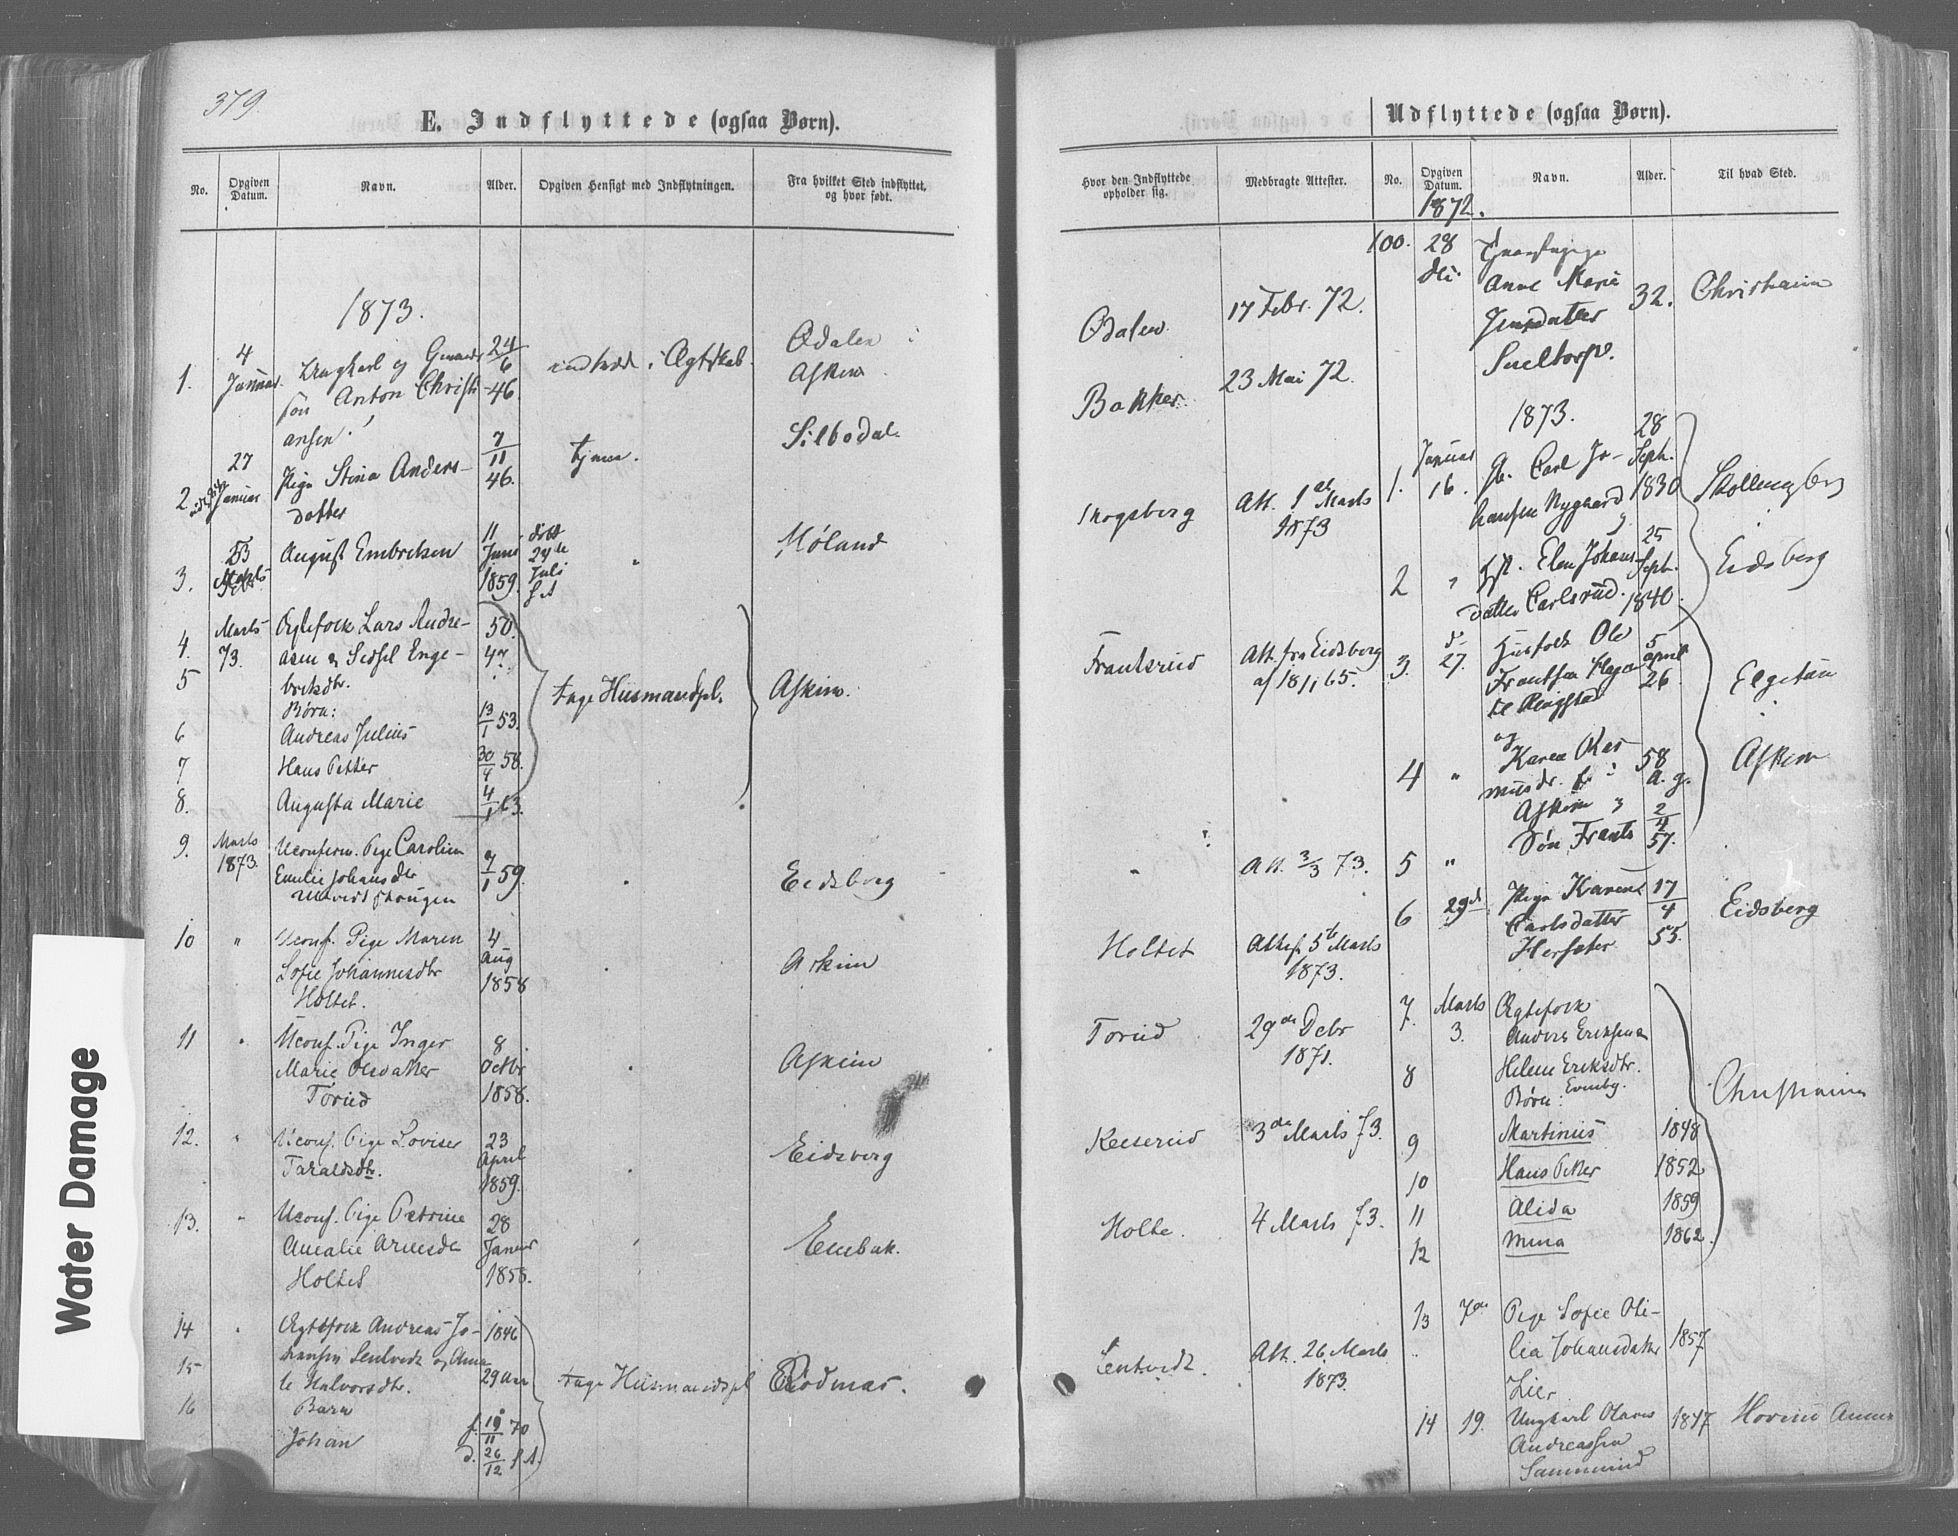 379.
E. Indflyttede (ogsaa Børn).
No.
Opgiven Datum.
Navn.
Alder.
Opgiven Hensigt med Indflytningen.
Fra hvilket Sted indflyttet, og hvor født.
1873.
1.
4 Januar
Ungkarl og
Anton Christi-
ansen
24/6
46.
indtræde i Ægtskab
Odalen
Askim
2
27 Januar
Pige Stina Anders-
datter
7/11
46.
tjene.
Silbodal
3.
August Embretsen
11
Juni
1859.
døbt
24de
Juli
s. A
Høland
4.
Marts
73.
Ægtefolk Lars Andre-
asen & Sidsel Enge-
bretsdtr.
50.
47.
5
Børn:
tage Husmandspl.
Askim.
6
Andreas Julius
13/1 53.
7
Hans Petter
30/4 58.
8.
Augusta Marie
4/1 63.
9.
Marts
1873.
Uconfirm. Pige Caroline
Emilie Johansdtr
7/1 59.
Eidsberg
10
"
Uconf. Pige Maren
Sofie Johannesdtr
Holtet.
4
Aug
1858
Askim
11
"
Uconf. Pige Inger
Marie Olsdatter
Torud
8
Octbr
1858.
Askim
12.
"
Uconf. Pige Loviser
Taraldsdtr.
23
April
1859.
Eidsberg
13.
"
Uconf. Pige Petrine
Amalie Arnesdtr
Holtet
28
Januar
1858.
14
"
Ægtefolk Andreas Jo-
hansen Sentvedt og Anne
1846
15
Halvorsdtr.
29 Aar
tage Husmandspl
Rødenæs.
16
Barn
Johan
f. 10/11 70
d. 26/12 s. A.
Udflyttede (ogsaa Børn).
Hvor den Indflyttede opholder sig.
Medbragte Attester.
No.
Opgiven Datum.
Navn.
Alder.
Til hvad Sted.
1872.
Odalen
17 Febr. 72.
100.
28
Anne Marie
Jensdatter
32.
Christiania
Bakker
23 Mai 72.
1873.
Skogsberg
Att. 1ste Marts
1873
1.
Januar
16.
Gb. Carl Jo-
hansen Nygaard
28
Sept.
1830
2
"
Elen Johans-
datter Carlsrud.
25
Sept.
1840.
Eidsberg
Frantsrud
Att. fra Eidsberg
af 18/1 65.
3.
27.
Husfolk Ole
Frantsen
5
April
26.
og
4
"
Karen Ras-
musdr.
Askim
58
a. g.
Askim
"
Att. 3/3 73.
5
"
Søn Frants
2/4
57.
6
29de
Pige Karen
Carlsdatter
Herseter
17/4
55.
Eidsberg
Holtet
Attest 5te Marts
1873.
Torud
29de Debr
1871.
7.
Marts
3.
Ægtefolk
Anders Eriksen &
8
Helene Eriksdtr.
Børn:
Christiania
3de Marts 73.
9
Martinus
1848
10
Hans Petter
1852
Holte.
4 Marts 73.
11
Alida
1859
12
Mina
1862
13
7de
Pige Sofie Oli-
lia Johansdatter
Lier
1857
Sentvedt.
Att. 26. Marts
1873.
14
19.
Ungkarl Olaves
Andreassen
1847
Water Damage